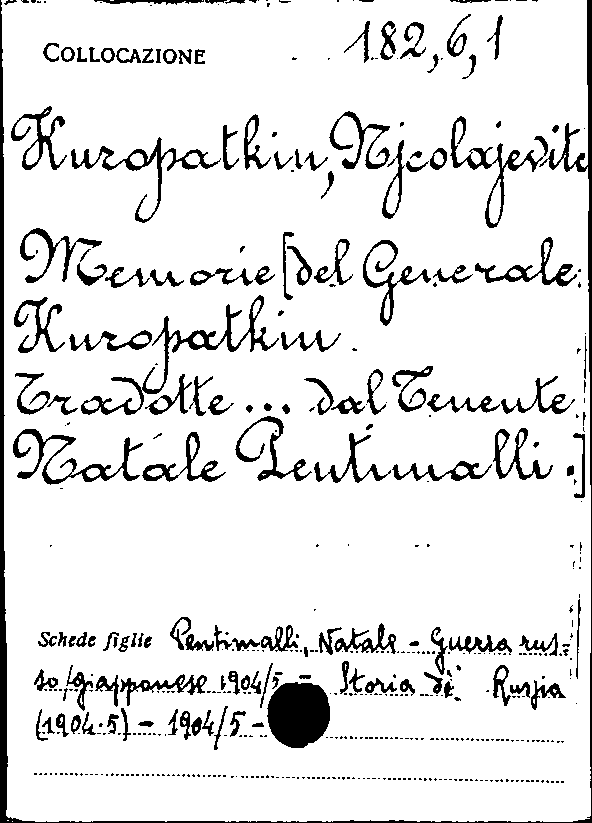 COLLOCAZIONE 182,6,1
Kuropatkin, Njcolajevitc
Memorie [del Generale
Kuropatkin.
Tradotte ... dal Tenente
Natale Pentimalli.]
Schede figlie Pentimalli, Natale - Guerra rus=
so/giapponese 1904/5 - Storia di Russia
(1904-5) - 1904/5 -